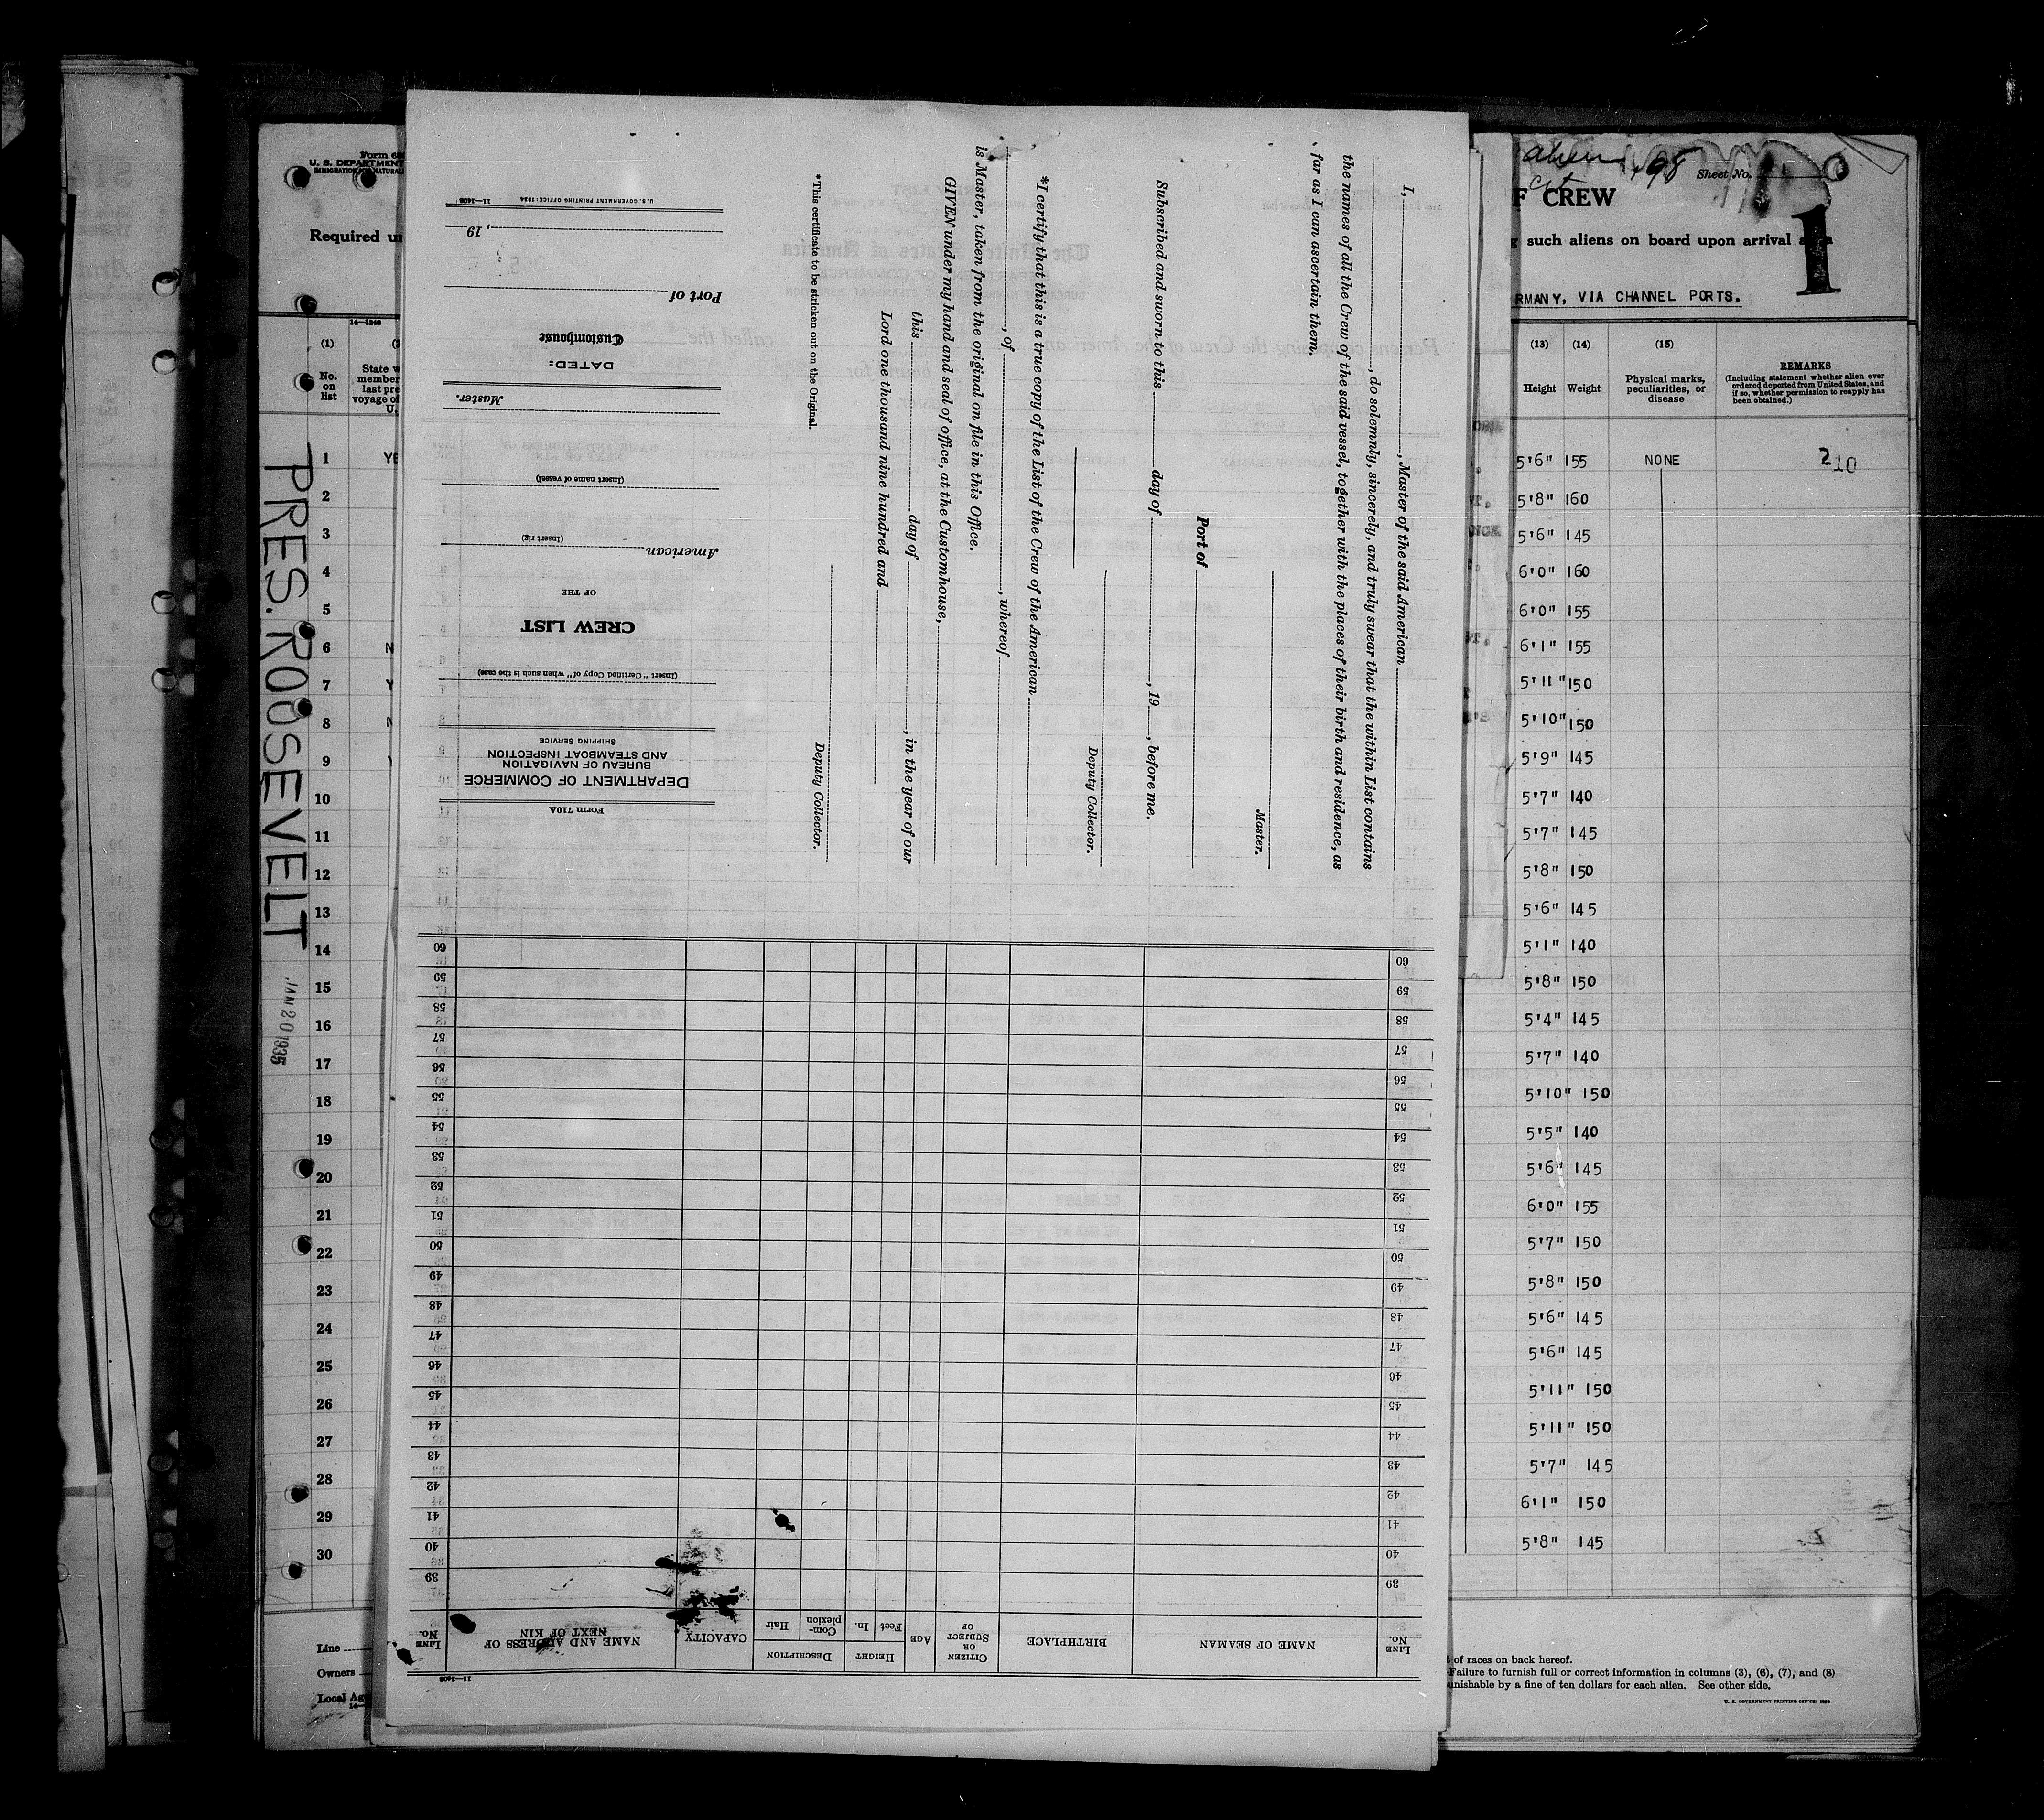 Form 6
U. S. DEPARTMENT
Required
14—1240
(1)
No.
on
list
State
member
last pre
voyage of
U.
1 YE
2
3
4
5
6 N
7 Y
8 N
9
10
11
12
13
14
15
16
17
18
19
20
21
22
23
24
25
26
27
28
29
30
Line
Owners
Local Ag
PRES. ROOSEVELT
JAN 20 1935
I, , Master of the said American
, do solemnly, sincerely, and truly swear that the within List contains
the names of all the Crew of the said vessel, together with the places of their birth and residence, as
far as I can ascertain them.
Master.
Port of
Subscribed and sworn to this day of , 19 , before me.
Deputy Collector.
*I certify that this is a true copy of the List of the Crew of the American
, of , whereof
is Master, taken from the original on file in this Office.
GIVEN under my hand and seal of office, at the Customhouse,
this day of , in the year of our
Lord one thousand nine hundred and
Deputy Collector.
*This certificate to be stricken out on the Original.
Form 710A
DEPARTMENT OF COMMERCE
BUREAU OF NAVIGATION
AND STEAMBOAT INSPECTION
SHIPPING SERVICE
(Insert "Certified Copy of" when such is the case)
CREW LIST
OF THE
American
(Insert rig)
(Insert name of vessel)
Master.
DATED:
Customhouse
Port of
, 19
U.S. GOVERNMENT PRINTING OFFICE: 1934 11—1408
11—1408
LINE No.
NAME OF SEAMAN
BIRTHPLACE
CITIZEN OR SUBJECT OF
AGE
HEIGHT
Feet
In.
DESCRIPTION
Com-plexion
Hair
CAPACITY
NAME AND ADDRESS OF NEXT OF KIN
LINE No.
39 39
40 40
41 41
42 42
43 43
44 44
45 45
46 46
47 47
48 48
49 49
50 50
51 51
52 52
53 53
54 54
55 55
56 56
57 57
58 58
59 59
60 60
alien
Sheet No.
1
F CREW
such aliens on board upon arrival
RMANY, VIA CHANNEL PORTS.
(13) (14) (15)
Height Weight
Physical marks, peculiarities, or disease
REMARKS
(Including statement whether alien ever ordered deported from United States, and if so, whether permission to reapply has been obtained.)
5'6" 155 NONE 210
5'8" 160
5'6" 145
6'0" 160
6'0" 155
6'1" 155
5'11" 150
5'10" 150
5'9" 145
5'7" 140
5'7" 145
5'8" 150
5'6" 145
5'1" 140
5'8" 150
5'4" 145
5'7" 140
5'10" 150
5'5" 140
5'6" 145
6'0" 155
5'7" 150
5'8" 150
5'6" 145
5'6" 145
5'11" 150
5'11" 150
5'7" 145
6'1" 150
5'8" 145
of races on back hereof.
Failure to furnish full or correct information in columns (3), (6), (7), and (8)
unishable by a fine of ten dollars for each alien. See other side.